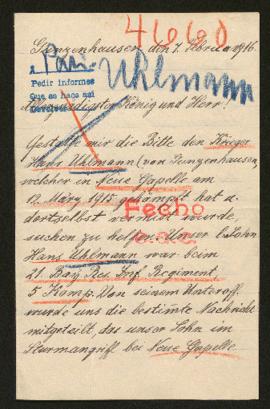 41660
Gunzenhausen, den 7. Februar 1916.
A Par.
Pedir informes
Que se haga así
Uhlmann
König und Herr!
Gestatte mir die Bitte den Krieger
Hans Uhlmann (von Gunzenhausen,
welcher in Neue Capelle am
12. März 1915 gekämpft hat u.
dortselbst vermißt wurde,
suchen zu helfen. Unser l. Sohn
Fecho
e.a.c.
Hans Uhlmann war beim
21. Bay. Res. Inf. Regiment,
5 Komp. Von seinem Unteroff.
wurde uns die bestimte Nachricht
mitgeteilt, das unser Sohn im
Sturmangriff bei Neue Capelle